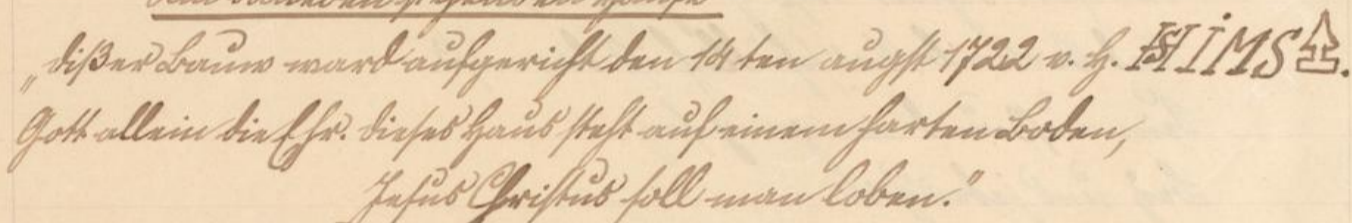 „dißer Bauw ward aufgericht den 14ten augst 1722 v. H. HS I i MS
Gott allein die Ehr. dieses Haus steht auf einem harten Boden,
Jesus Christus soll man loben."